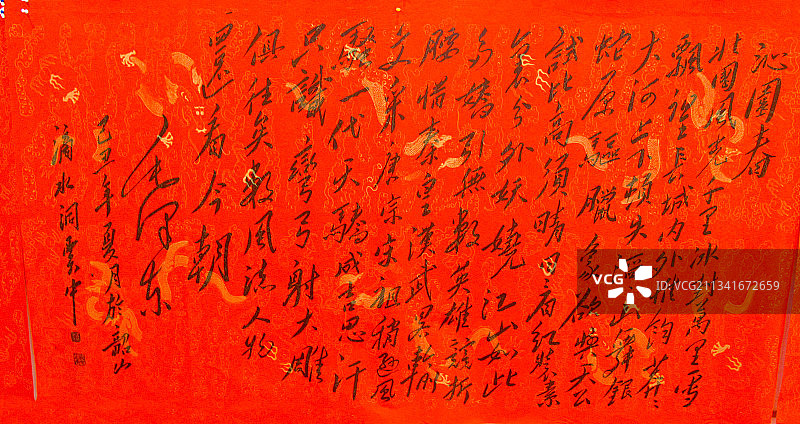 沁園春
北國風光千里冰封萬里雪
飄望長城内外惟餘莽莽
大河上下頓失滔山舞銀
蛇原驅臘象欲與天公
試比高須晴日看紅裝素
裹分外妖嬈江山如此
多嬌引無數英雄競折
腰惜秦皇漢武略輸
文采唐宗宋祖稍遜風
騷一代天驕成吉思汗
只識彎弓射大雕
俱往矣數風流人物
還看今朝
毛澤東
己丑年夏月於韶山
滴水洞雲中
视觉中国
VCG211341672659